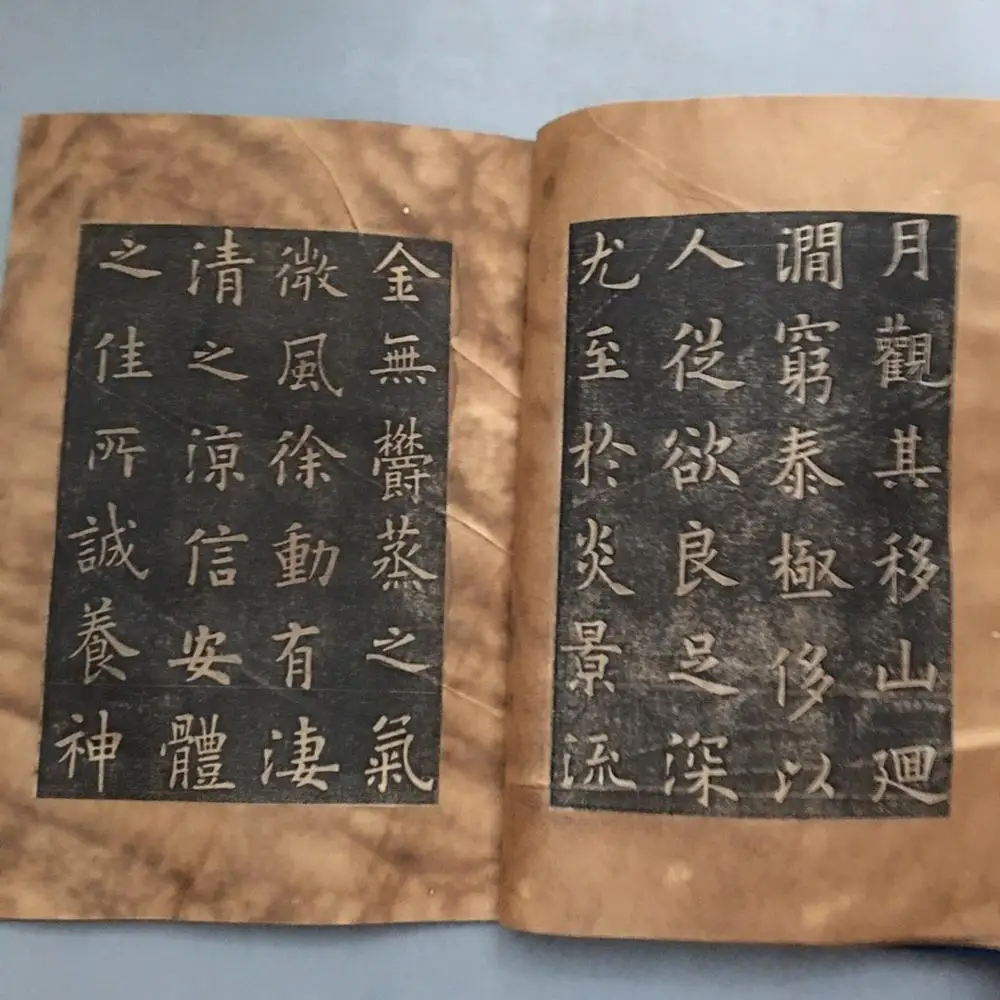 月觀其移山迴
澗窮泰極侈以
人從欲良足深
尤至於炎景流
金無欎蒸之氣
微風徐動有淒
清之涼信安體
之佳所誠養神